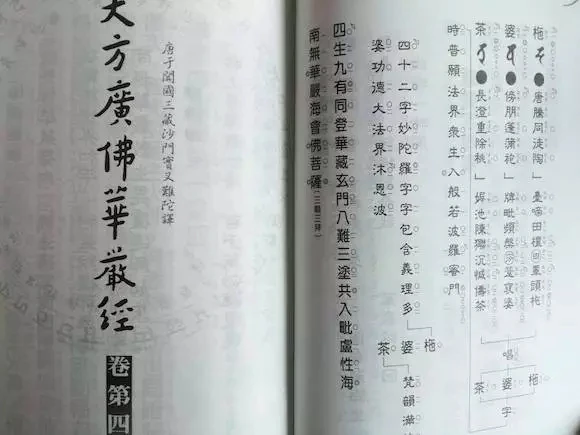 柂●唐騰同徒陶」臺啼田檀回曇頭柂
婆●傍朋蓬蒲袍」牌毗頻槃婆
茶●長澄重除桃」池陳沉儔茶
唱
柂
婆
茶
字
時普願法界衆生入般若波羅蜜門
四十二字妙陀羅字字包含義理多
柂
婆
茶
梵韻滿
婆功德大法界沐恩波
四生九有同登華藏玄門八難三塗共入毗盧性海
南無華嚴海會佛菩薩(三稱三拜)
唐于闐國三藏沙門實叉難陀譯
大方廣佛華嚴經
卷第四